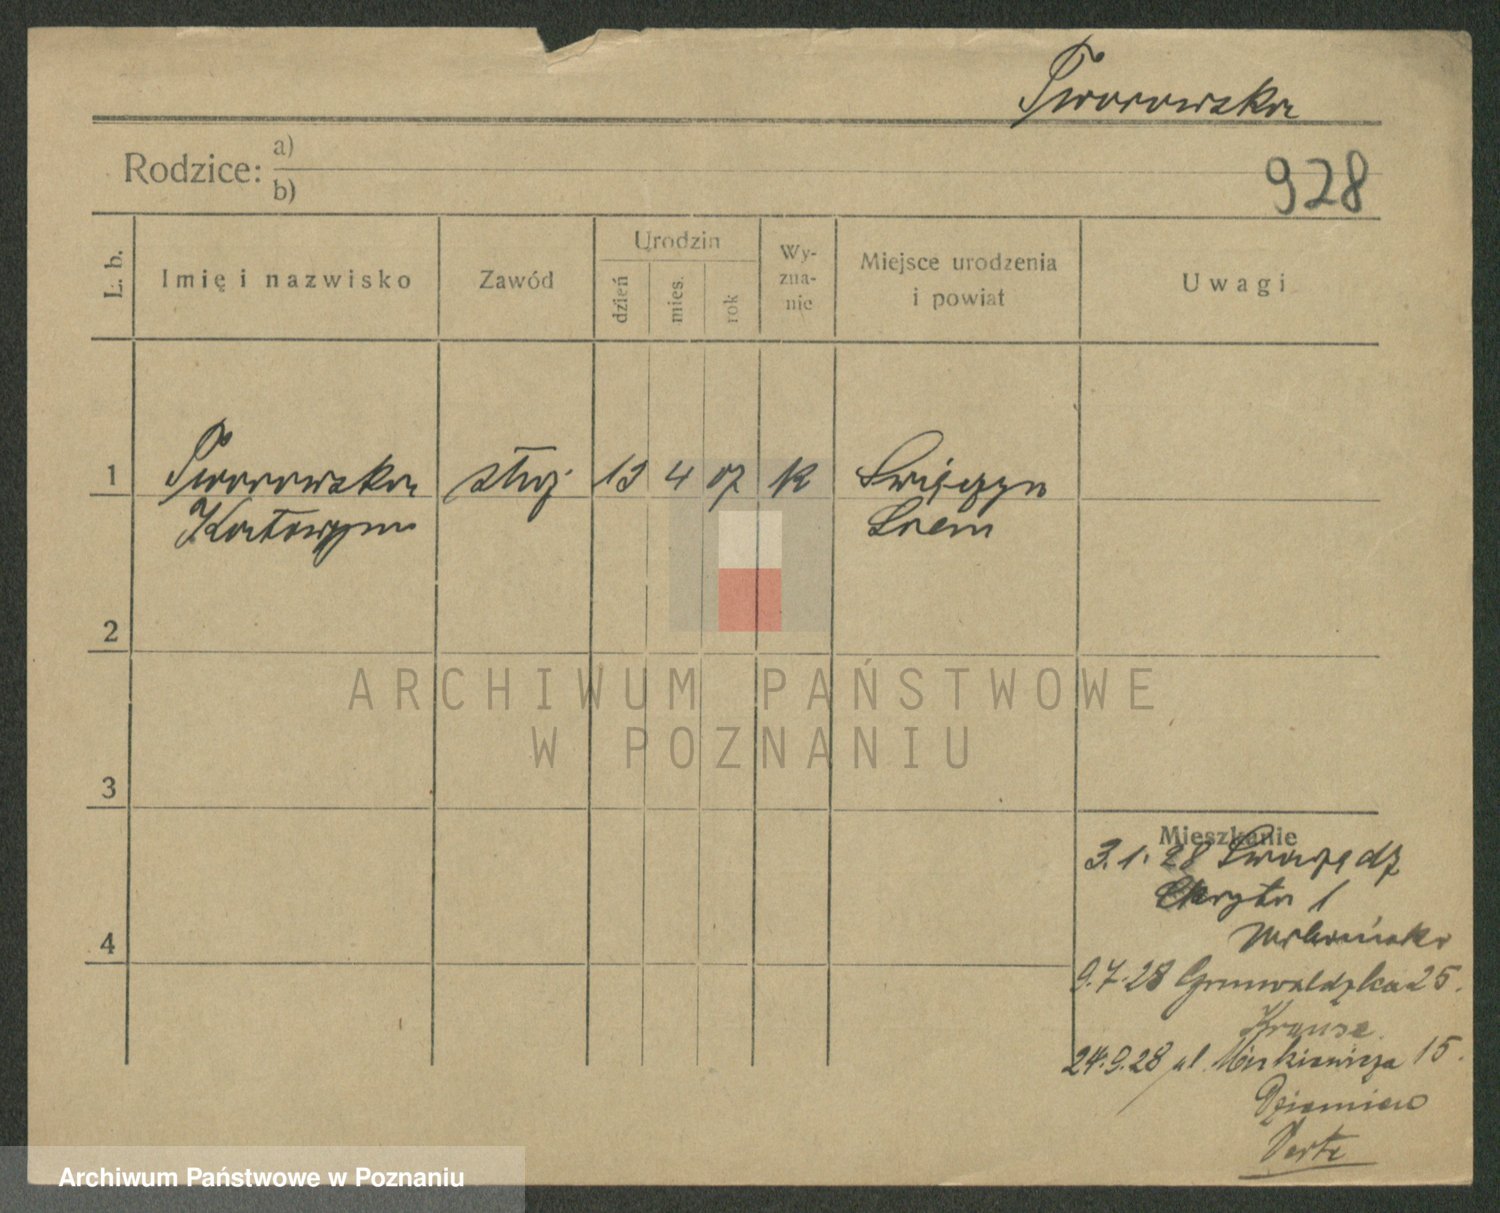 Tworowska
Rodzice: a)
b)
928
L. b.
Imię i nazwisko
Zawód
Urodzin
dzień
mies.
rok
Wy-
zna-
nie
Miejsce urodzenia
i powiat
Uwagi
1
Tworowska
służ
13
4
07
k
Katarzyna
Śrem
2
3
4
Mieszkanie
3.1.28 Swarzędz
1
9.7.28 Grunwaldzka 25.
Krause
24.9.28 ul. Mickiewicza 15.
ARCHIWUM PAŃSTWOWE
W POZNANIU
Archiwum Państwowe w Poznaniu